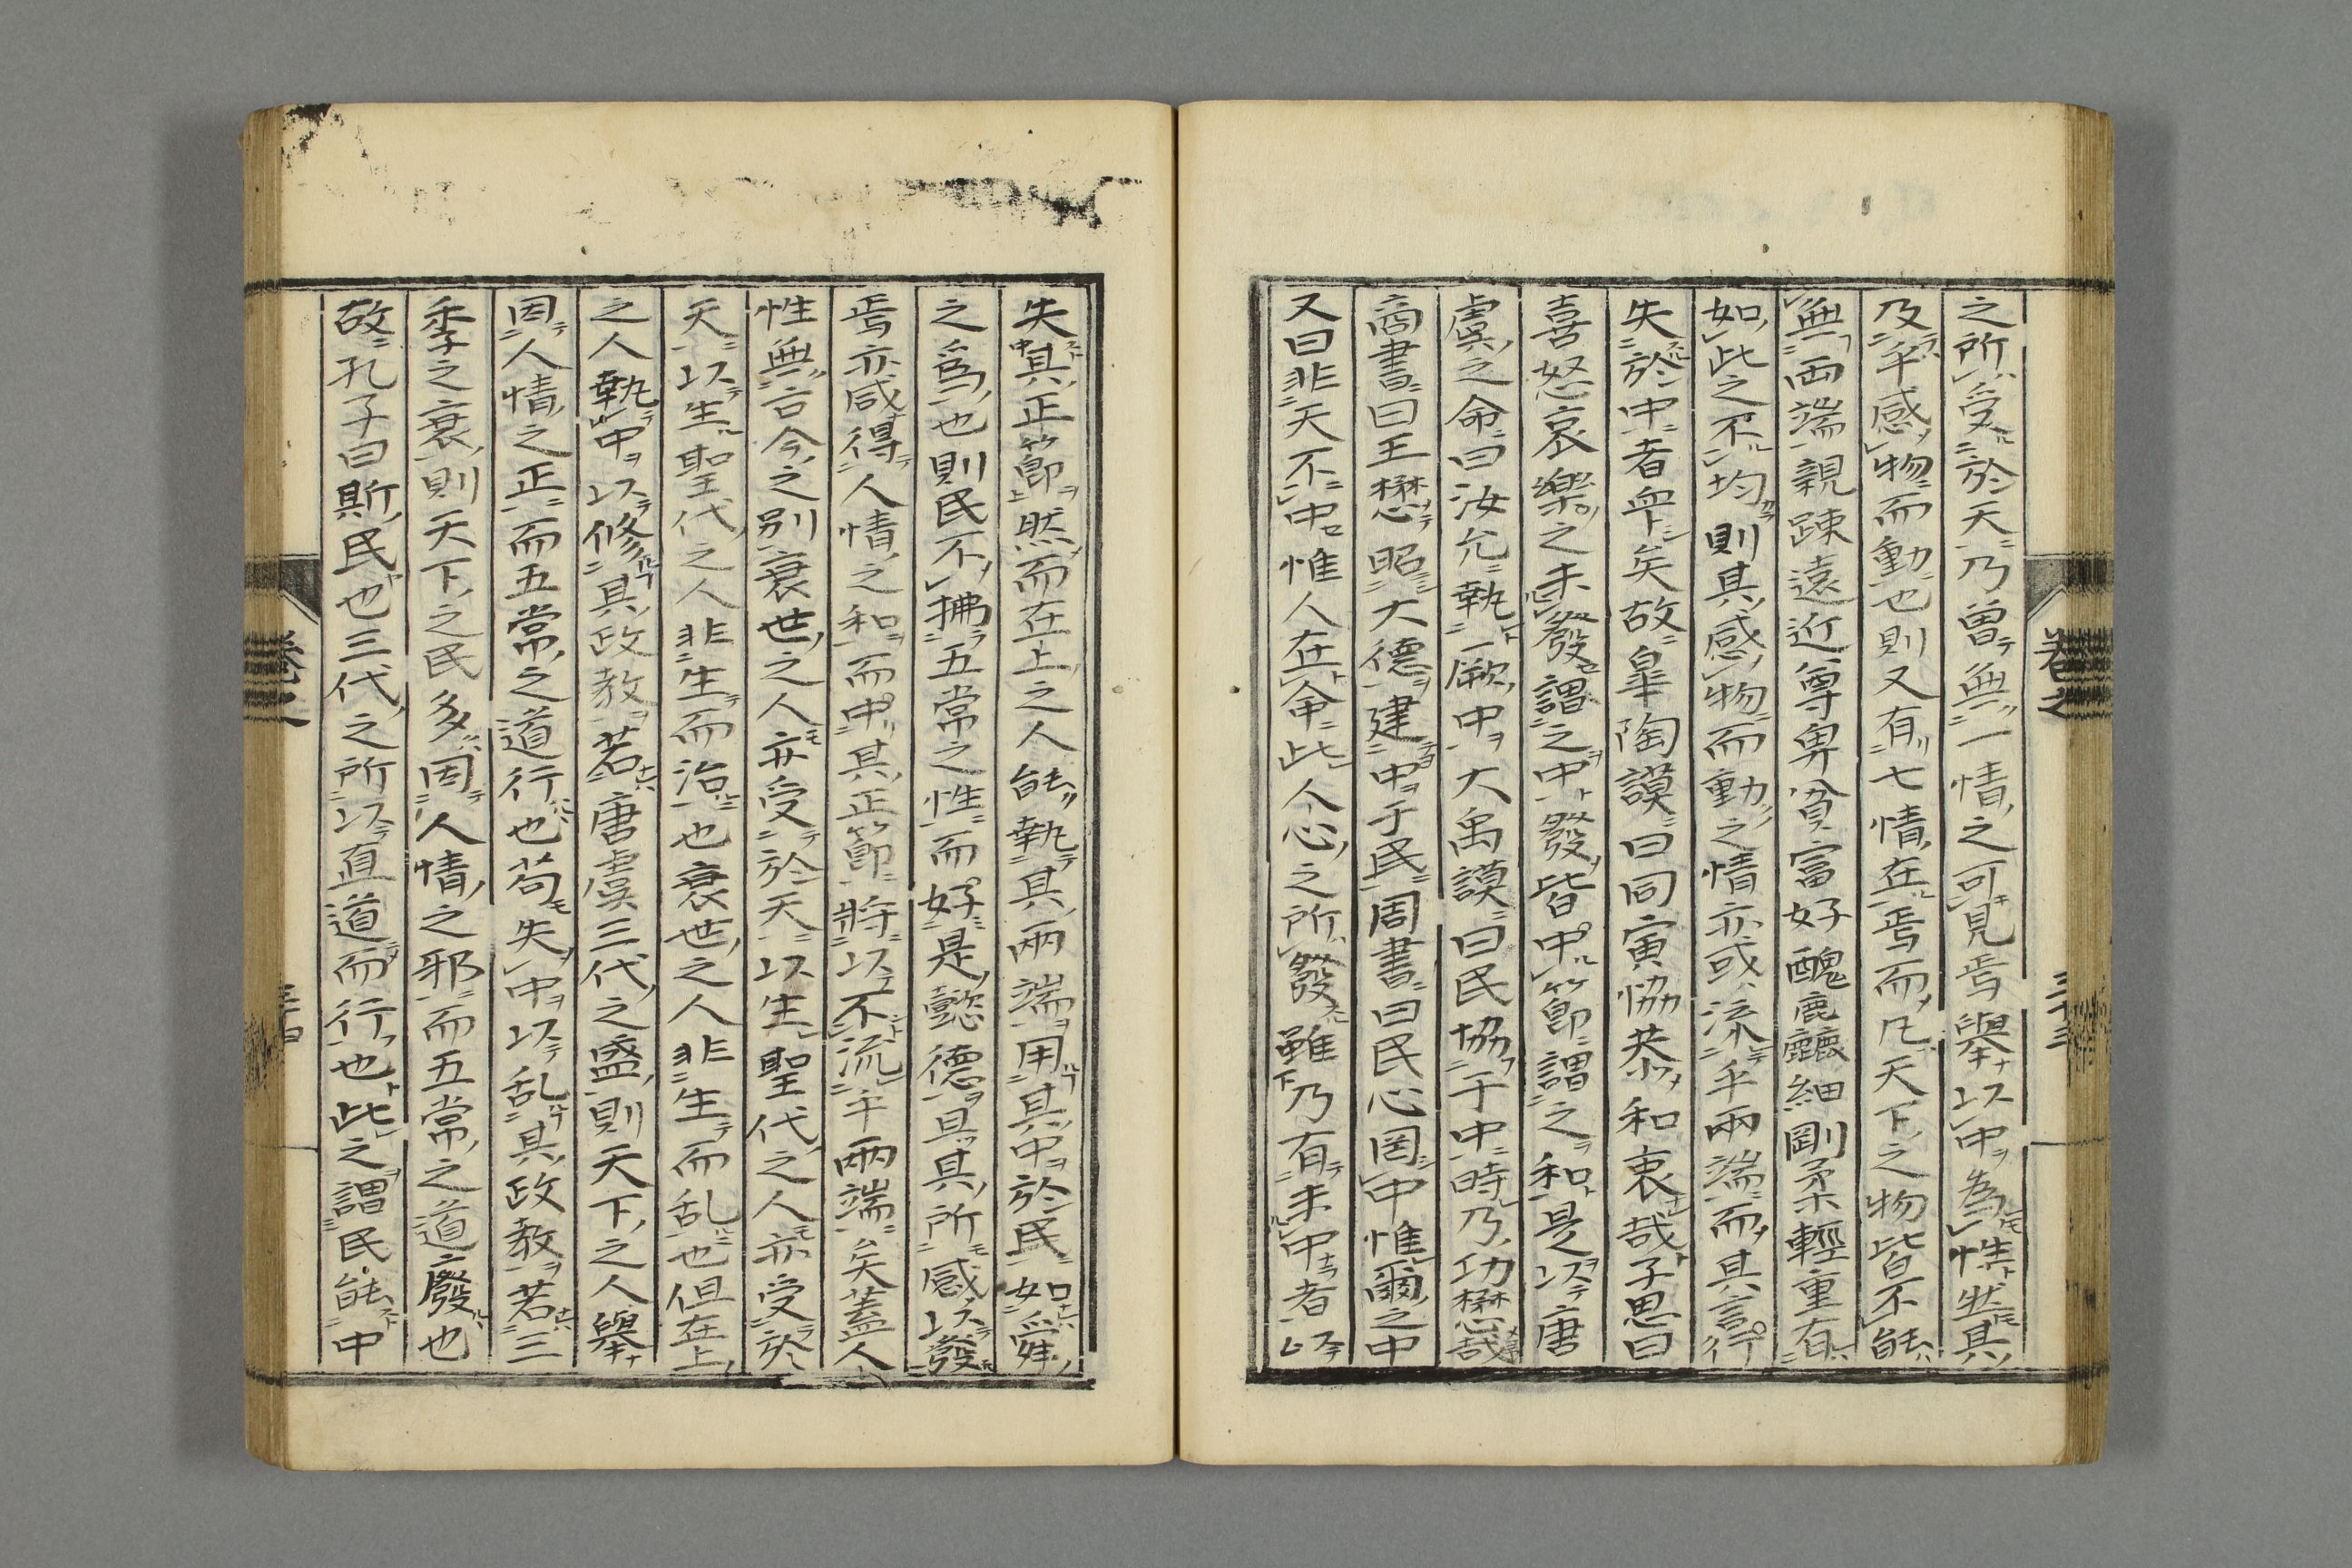 之所受於天乃曽無一情之可見焉舉以中為性狀其
及乎感物而動也則又有七情在焉而凡天下之物皆不能
無両端親踈遠近尊卑貧富好醜麁麤細剛柔輕重有
如此之不均則其感物而動之情亦或流乎兩端而其言行
失於中者毎矣故皐陶謨曰同寅恊恭和衷哉子思曰
喜怒哀樂之未發謂之中發皆中節謂之和是以唐
虞之命曰汝允執厥中大禹謨曰民協于中時乃功懋哉
商書曰王懋昭大德建中于民周書曰民心罔中惟爾之中
又曰非天不中惟人在命此人心之所發雖乃有未中者以
卷之
三十三
失其正節然而在上之人能執其兩端用其中於民如舜
之爲也則民不拂五常之性而好是懿德且其所感以發
焉亦咸得人情之和而中其正節將以不流乎兩端矣蓋人
性無古今之別衰世之人亦受於天以生聖代之人亦受於
天以生聖代之人非生而治也衰世之人非生而乱也但在上
之人執中以修其政教若唐虞三代之盛則天下之人舉
因人情之正而五常之道行也苟失中以乱其政教若三
季之衰則天下之民多因人情之邪而五常之道廢也
故孔子曰斯民也三代之所以直道而行也此之謂民能中
卷之
三十四